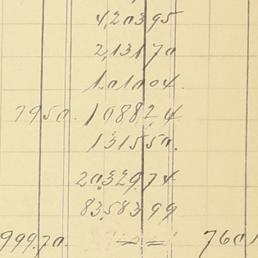 4,203.95
2,131.70
1,010.04
79.50. 1,088.24
1,315.50.
20,329.74
83,583.99
999.70. 760